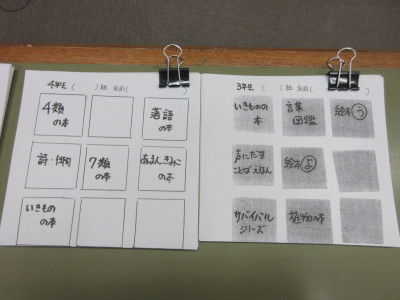 4年生（　　）組 名前（　　　　　）
4類
の本
落語
の本
詩・
7類
の本
あまんきみこ
の本
いきもの
の本
3年生（　　）組 名前（　　　　　）
いきものの
本
言葉
図鑑
絵本う
声にだす
ことばえほん
絵本よ
サバイバル
シリーズ
植物の本